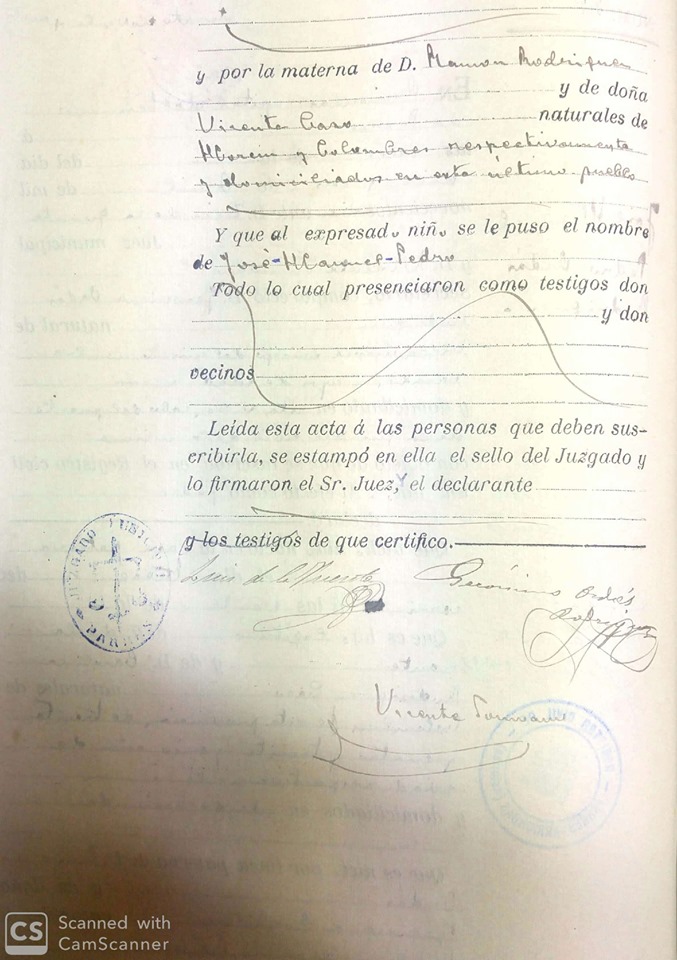 y por la materna de D. Ramon Rodriguez
y de doña
Vicenta Caso naturales de
y Colombres respectivamente
y domiciliados en este último pueblo
Y que al expresado niño se le puso el nombre
de José-Manuel-Pedro
Todo lo cual presenciaron como testigos don
y don
vecinos
Leída esta acta á las personas que deben sus-
cribirla, se estampó en ella el sello del Juzgado y
lo firmaron el Sr. Juez, y el declarante
y los testigos de que certifico.
JUZGADO MUNICIPAL
PARRES
Luis de la
Gerónimo Ordiés
Rodríguez
Vicente
CS Scanned with
CamScanner